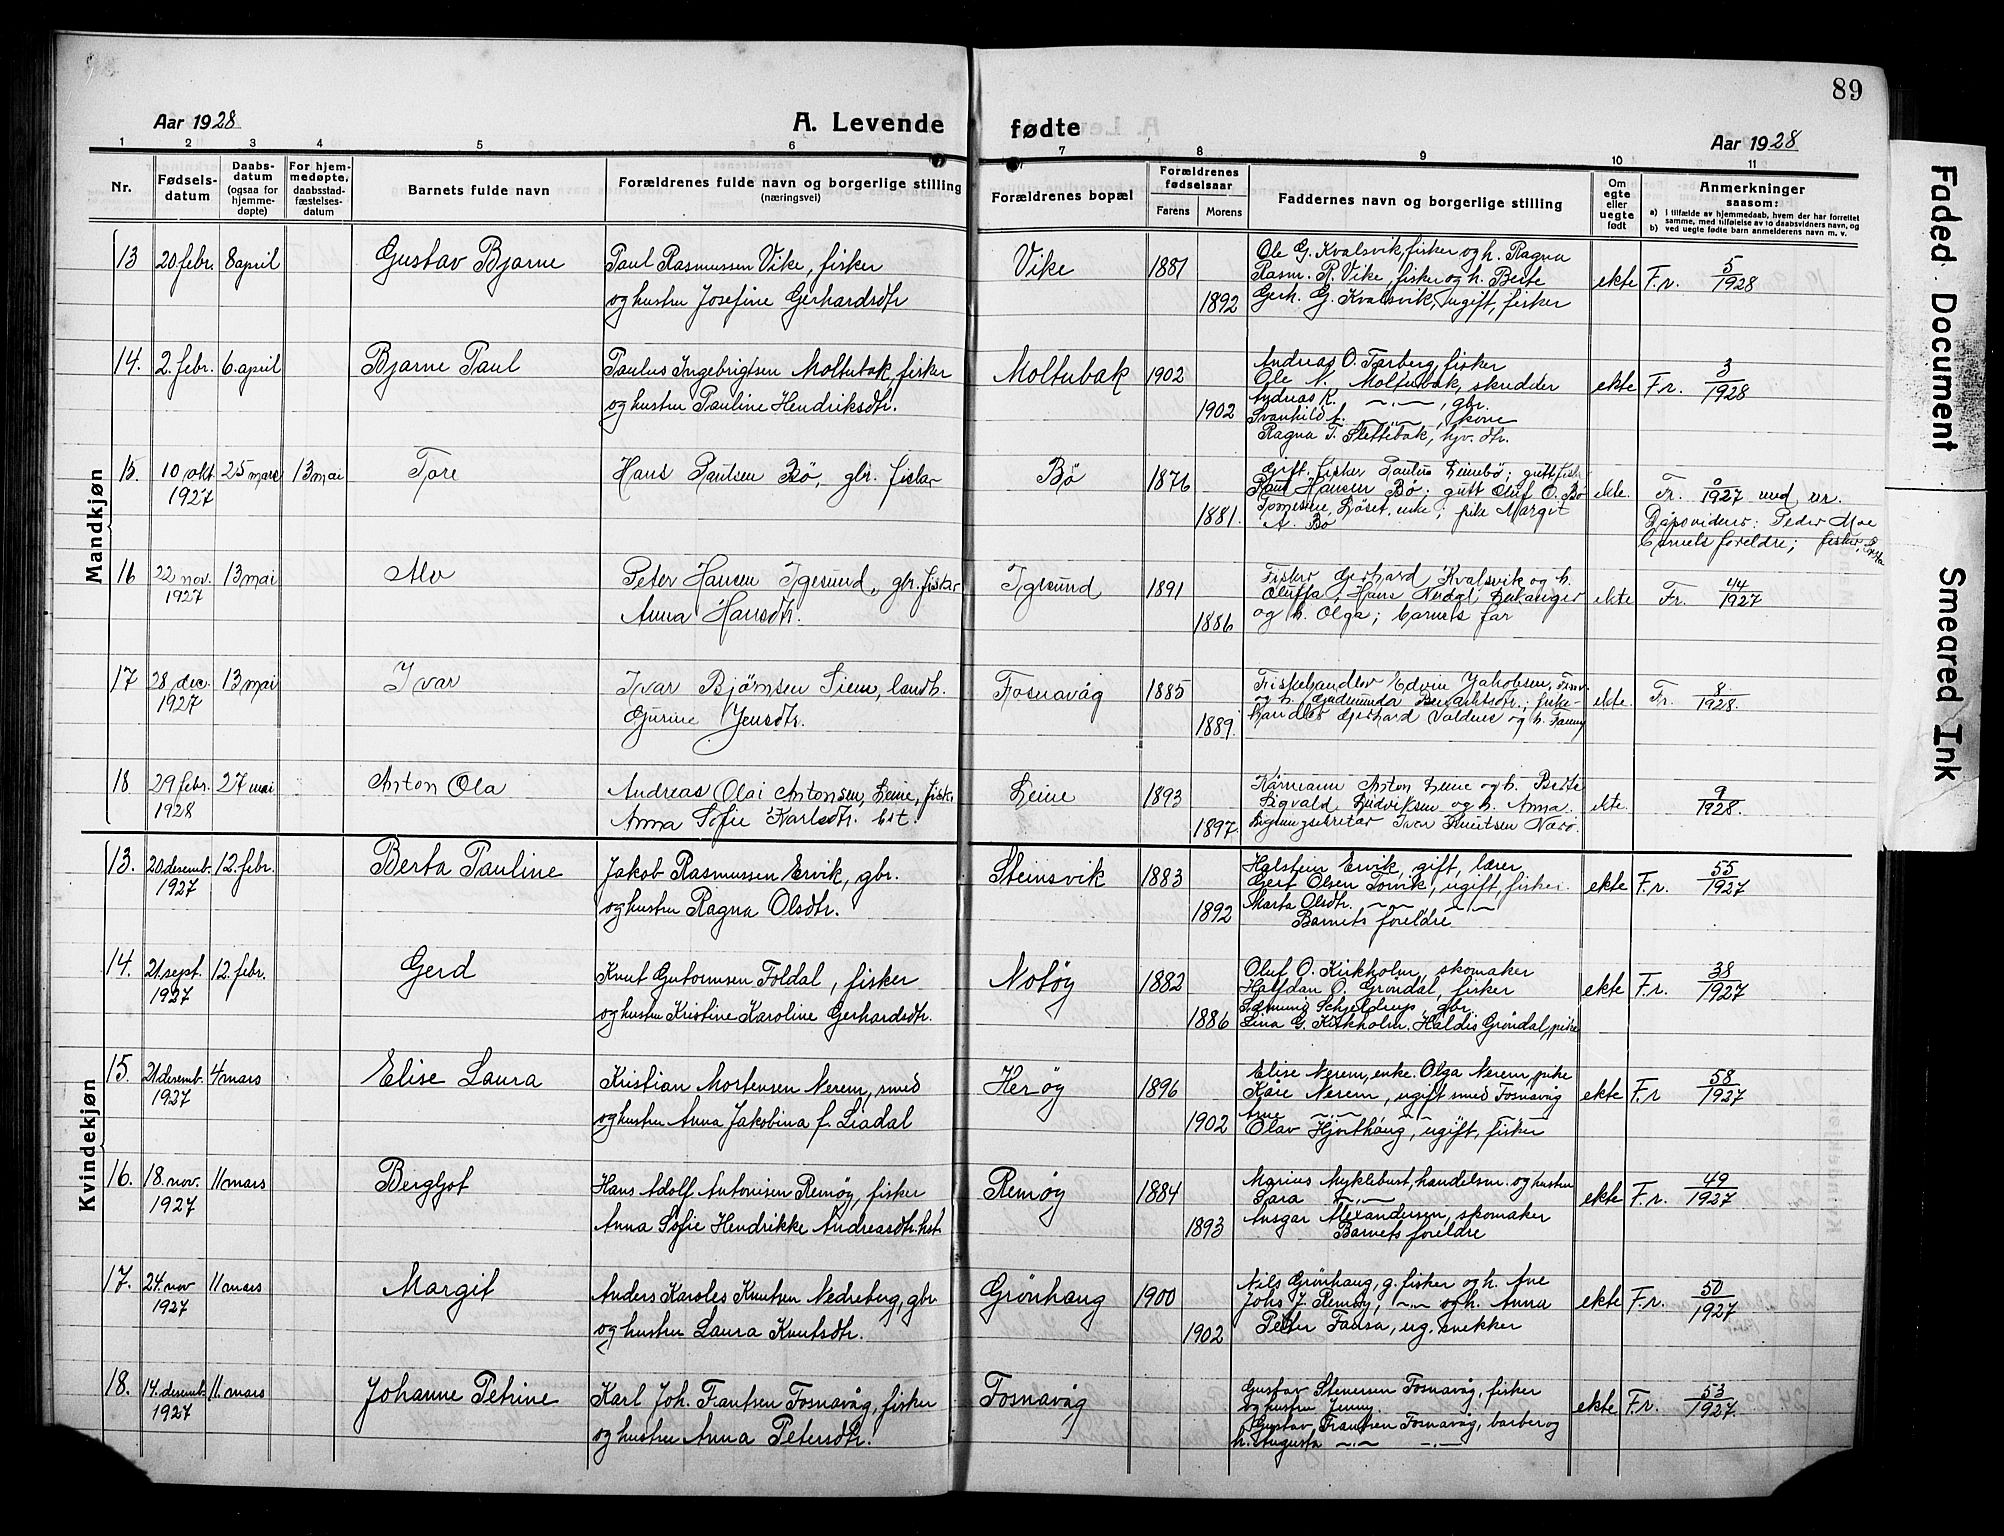 89
Aar 1928
A. Levende fødte
Aar 1928
1 2 3 4 5 6 7 8 9 10 11
Nr.
Fødsels-
datum
Daabs-
datum
(ogsaa for
hjemme-
døpte)
For hjem-
medøpte,
daabsstad-
fæstelses-
datum
Barnets fulde navn
Forældrenes fulde navn og borgerlige stilling
(næringsvei)
Forældrenes bopæl
Forældrenes
fødselsaar
Farens Morens
Faddernes navn og borgerlige stilling
Om
egte
eller
uegte
født
Anmerkninger
saasom:
a) I tilfælde av hjemmedaab, hvem der har forrettet
samme, med tilføielse av to daabsvidners navn, og
b) ved uegte fødte barn anmelderens navn m. v.
Mandkjøn
13 20 febr. 8 april Gustav Bjarne
Paul Rasmussen Vike, fisker
og hustru Josefine Gerhardsdtr
Vike 1881 1892
Ole G. Kvalsvik, fisker og h. Ragna
Rasm. P. Vike, fisker og h. Berte
Gerh. G. Kvalsvik, ugift, fisker
ekte F.r. 5/1928
14. 2. febr. 6 april Bjarne Paul
Paulus Ingebrigtsen Moltubak, fisker
og hustru Pauline Hendriksdtr.
Moltubak 1902 1902
Andreas O. Tarberg, fisker
Ole N. Moltubak, skredder
Andreas K. —"—, gbr.
Svanhild —"—, kone
Ragna T. Slettebak, hjv. dtr.
ekte F.r. 3/1928
15. 10 okt 1927 25 mars 13 mai Tore
Hans Paulsen Bø, gbr. fisker
Bø 1876 1881.
Gift. fisker Paulus Leinebø; gutt fisk.
Paul Hansen Bø; gutt Oluf O. Bø
Løset, enke; pike Margit
A. Bø
ekte. Fr. 1927 med nr.
Dåpsvidner: Peder Moe
barnets foreldre; fisker,
16 22 nov. 1927 13 mai Alv
Peter Hansen Igesund, gbr. fisker
Anna Hansdtr.
Igesund 1891 1886
Fisker Gerhard Kvalsvik og h.
Oluffa; Hans
og h. Olga; barnets far
ekte Fr. 44/1927
17 28 dec. 1927 13 mai Ivar
Ivar Bjørnsen Siem, landh.
Gurine Jensdtr.
Fosnavåg 1885 1889.
Fiskehandler Edvin Jakobsen, Fosnv.
og h. fiske-
handler Gerhard Voldnes og h. Fanny
ekte. Fr. 8/1928.
18 29 febr. 1928 27 mai Anton Ola
Andreas Olai Antonsen, Leine, fisk.
Anna Sofie Karlsdtr. hst.
Leine 1893 1897.
Kårmann Anton Leine og h. Berte
Sigvald Ludviksen og h. Anna.
Ligningssekretær Iver Knutsen Nærø.
ekte. 9/1928.
Kvindekjøn
13. 20 desemb. 1927 12. febr. Berta Pauline
Jakob Rasmussen Ervik, gbr.
og hustru Ragna Olsdtr.
Steinsvik 1883 1892
Halstein Ervik, gift, lærer
Gert Olsen Torvik, ugift, fisker.
Marta Olsdtr. —"— —"—
Barnets foreldre
ekte F.r. 55/1927
14. 21. sept. 1927 12. febr. Gerd
Knut Gutormsen Foldal, fisker
og hustru Kristine Karoline Gerhardsdtr.
Notøy 1882 1886
Oluf O. Kirkholm, skomaker
Halfdan O. Grøndal, fisker
Sæmund Schjelderup, gbr.
Lina G. Kirkholm. Haldis Grøndal, pike
ekte F.r. 38/1927
15. 21. desemb. 1927 4 mars Elise Laura
Kristian Mortensen Nerem, smed
og hustru Anna Jakobina f. Liadal
Herøy 1896 1902
Elise Nerem, enke. Olga Nerem, pike
Kåre Nerem, ugift smed Fosnavåg
Arne —"— —"—
Olav Hjorthaug, ugift, fisker
ekte F.r 58/1927
16. 18. nov. 1927 11 mars Bergljot
Hans Adolf Antonisen Remøy, fisker
Anna Sofie Hendrikke Andreasdtr. hst.
Remøy 1884 1893
Marius Myklebust, handelsm. og hustru
Sara —"—
Ansgar Alexandersen, skomaker
Barnets foreldre
ekte F.r. 49/1927
17. 24. nov 1927 11 mars Margit
Anders Karoles Knutsen Nedreberg, gbr
og hustru Laura Knutsdtr.
Grønhaug 1900 1902
Nils Grønhaug, g. fisker og h. Ane
Johs J. Remøy, —"— og h. Anna
Petter Fauså, ug. snekker
ekte F.r. 50/1927
18. 14. desemb. 1927 11. mars Johanne Petrine
Karl Joh. Frantsen Fosnavåg, fisker
og hustru Anna Petersdtr.
Fosnavåg
Gustav Stenersen Fosnavåg, fisker
og hustru Jenny.
Gustav Frantsen Fosnavåg, barber og
h. Augusta —"— —"—
ekte F.r. 53/1927
Faded Document
Smeared Ink